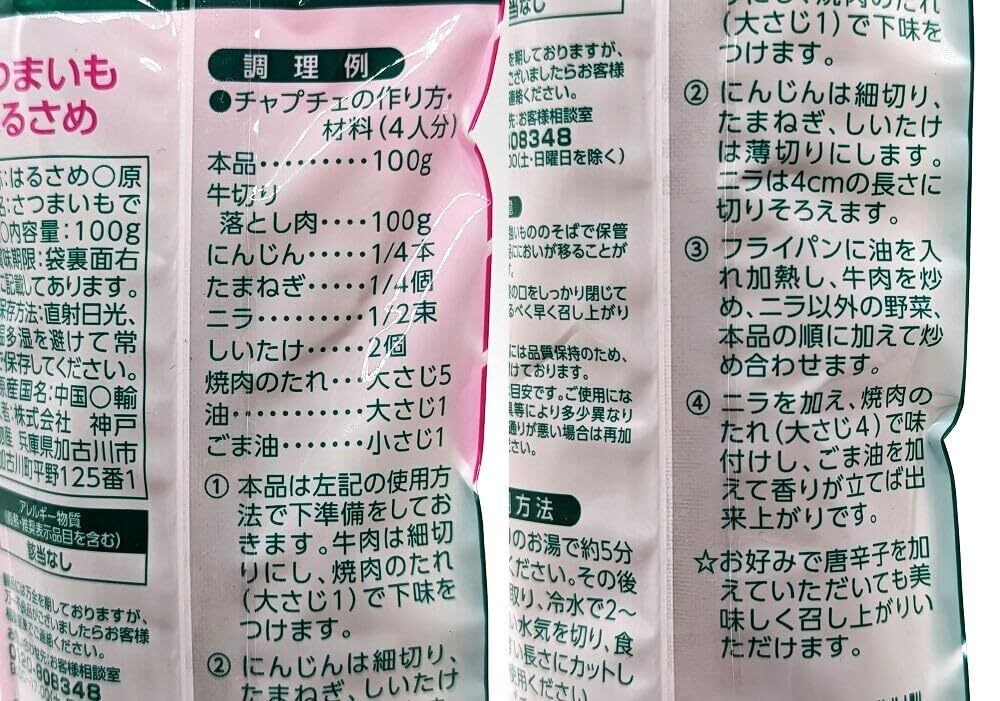 つまいも
るさめ
はるさめ〇原
名:さつまいもで
〇内容量:100g
賞味期限:袋裏面右
に記載してあります。
保存方法:直射日光、
温多湿を避けて常
で保存してください。
原産国名:中国〇輸
者:株式会社 神戸
物産 兵庫県加古川市
加古川町平野125番1
アレルギー物質
(義務・推奨表示品目を含む)
該当なし
万全を期しておりますが、
ございましたらお客様
ご連絡ください。
お客様相談室
0120-808348
調理例
●チャプチェの作り方・
材料(4人分)
本品・・・・・・・・・100g
牛切り
落とし肉・・・・100g
にんじん・・・・・1/4本
たまねぎ・・・・・1/4個
ニラ・・・・・・・・・1/2束
しいたけ・・・・・・2個
焼肉のたれ・・・大さじ5
油・・・・・・・・・・・大さじ1
ごま油・・・・・・・小さじ1
① 本品は左記の使用方
法で下準備をしてお
きます。牛肉は細切
りにし、焼肉のたれ
(大さじ1)で下味を
つけます。
② にんじんは細切り、
たまねぎ、しいたけ
当なし
を期しておりますが、
ございましたらお客様
連絡ください。
先:お客様相談室
808348
00(土・日曜日を除く)
強いもののそばで保管
品ににおいが移ることが
す。
の口をしっかり閉じて
るべく早く召し上がり
には品質保持のため、
けております。
目安です。ご使用にな
具等により多少異なり
通りが悪い場合は再加
さい。
方法
のお湯で約5分
ください。その後
取り、冷水で2〜
い水気を切り、食
すい長さにカットし
使用ください。
りにし、焼肉のたれ
(大さじ1)で下味を
つけます。
② にんじんは細切り、
たまねぎ、しいたけ
は薄切りにします。
ニラは4cmの長さに
切りそろえます。
③ フライパンに油を入
れ加熱し、牛肉を炒
め、ニラ以外の野菜、
本品の順に加えて炒
め合わせます。
④ ニラを加え、焼肉の
たれ(大さじ4)で味
付けし、ごま油を加
えて香りが立てば出
来上がりです。
☆お好みで唐辛子を加
えていただいても美
味しく召し上がりい
ただけます。